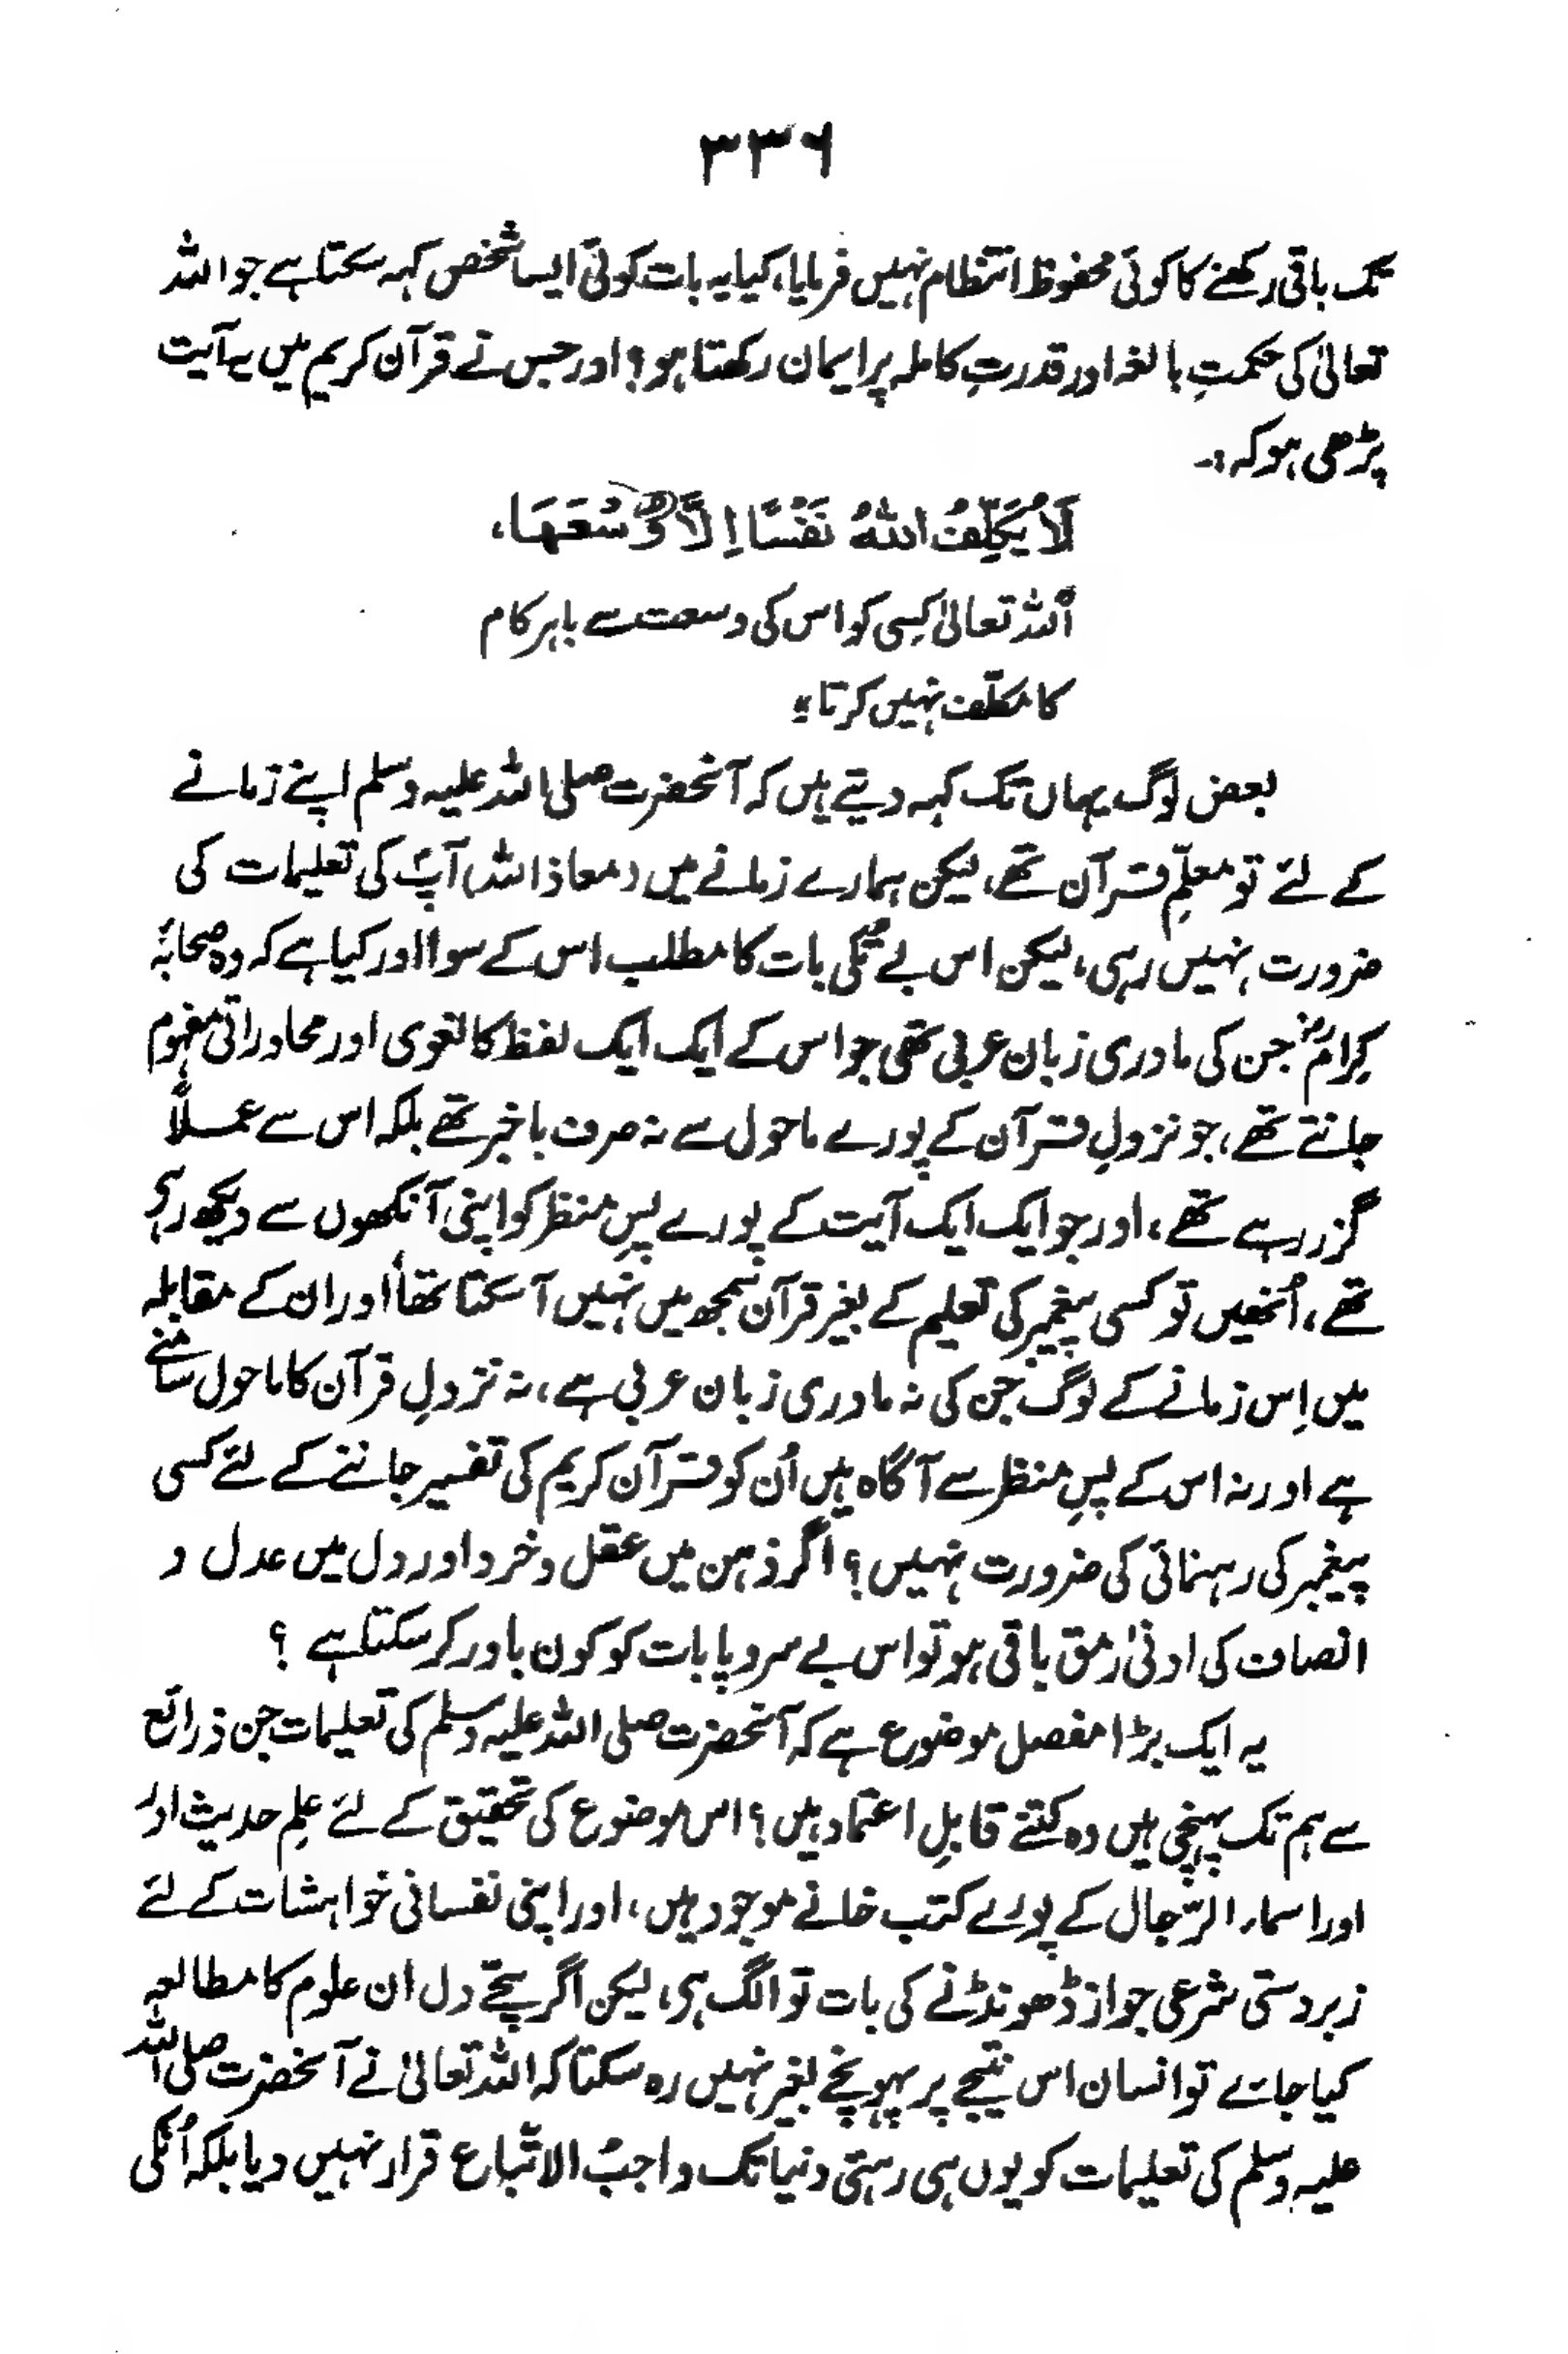 ۳۳۶
تک باقی رکھنے کا کوئی محفوظ انتظام نہیں فرمایا، کیا یہ بات کوئی ایسا شخص کہہ سکتا ہے جو اللہ
تعالیٰ کی حکمتِ بالغہ اور قدرتِ کاملہ پر ایمان رکھتا ہو؟ اور جس نے قرآن کریم میں یہ آیت
پڑھی ہو کہ:۔
لَا يُكَلِّفُ اللّٰهُ نَفْسًا اِلَّا وُسْعَهَا،
"اللہ تعالیٰ کسی کو اس کی وسعت سے باہر کام
کا مکلّف نہیں کرتا"
بعض لوگ یہاں تک کہہ دیتے ہیں کہ آنحضرت صلی اللہ علیہ وسلم اپنے زمانے
کے لئے تو معلّمِ قرآن تھے، لیکن ہمارے زمانے میں (معاذ اللہ) آپؐ کی تعلیمات کی
ضرورت نہیں رہی، لیکن اس بے تُکی بات کا مطلب اس کے سوا اور کیا ہے کہ وہ صحابۂ
کرامؓ جن کی مادری زبان عربی تھی جو اس کے ایک ایک لفظ کا لغوی اور محاوراتی مفہوم
جانتے تھے، جو نزولِ قرآن کے پورے ماحول سے نہ صرف باخبر تھے بلکہ اس سے عملاً
گزر رہے تھے، اور جو ایک ایک آیت کے پورے پسِ منظر کو اپنی آنکھوں سے دیکھ رہے
تھے، اُنھیں تو کسی پیغمبر کی تعلیم کے بغیر قرآن سمجھ میں نہیں آسکتا تھا، اور ان کے مقابلہ
میں اِس زمانے کے لوگ جن کی نہ مادری زبان عربی ہے، نہ نزولِ قرآن کا ماحول سامنے
ہے اور نہ اس کے پسِ منظر سے آگاہ ہیں اُن کو قرآن کریم کی تفسیر جاننے کے لئے کسی
پیغمبر کی رہنمائی کی ضرورت نہیں؟ اگر ذہن میں عقل و خرد اور دل میں عدل و
انصاف کی ادنیٰ رمق باقی ہو تو اس بے سروپا بات کو کون باور کر سکتا ہے ؟
یہ ایک بڑا مفصل موضوع ہے کہ آنحضرت صلی اللہ علیہ وسلم کی تعلیمات جن ذرائع
سے ہم تک پہنچی ہیں وہ کتنے قابلِ اعتماد ہیں؟ اس موضوع کی تحقیق کے لئے علمِ حدیث اور
اور اسماء الرّجال کے پورے کتب خانے موجود ہیں، اور اپنی نفسانی خواہشات کے لئے
زبردستی شرعی جواز ڈھونڈنے کی بات تو الگ ہی، لیکن اگر سچّے دل ان علوم کا مطالعہ
کیا جائے تو انسان اس نتیجے پر پہونچے بغیر نہیں رہ سکتا کہ اللہ تعالیٰ نے آنحضرت صلی اللہ
علیہ وسلم کی تعلیمات کو یوں ہی رہتی دنیا تک واجبُ الاتّباع قرار نہیں دیا بلکہ اُنکی